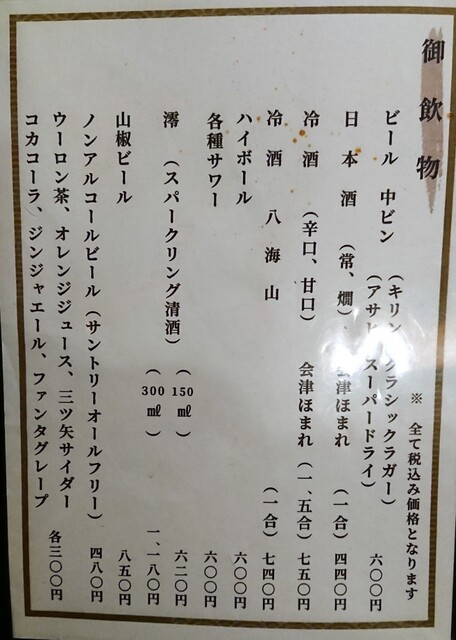 御飲物
※ 全て税込み価格となります
ビール 中ビン (キリン クラシックラガー)
(アサヒ スーパードライ) 六〇〇円
日本酒 (常、燗) 会津ほまれ (一合) 四四〇円
冷酒 (辛口、甘口) 会津ほまれ (一、五合) 七五〇円
冷酒 八海山 (一合) 七四〇円
ハイボール 六〇〇円
各種サワー 六〇〇円
澪 (スパークリング清酒) (150㎖) 六二〇円
(300㎖) 一、一八〇円
山椒ビール 八五〇円
ノンアルコールビール (サントリーオールフリー) 四八〇円
ウーロン茶、オレンジジュース、三ツ矢サイダー
コカコーラ、ジンジャエール、ファンタグレープ 各三〇〇円